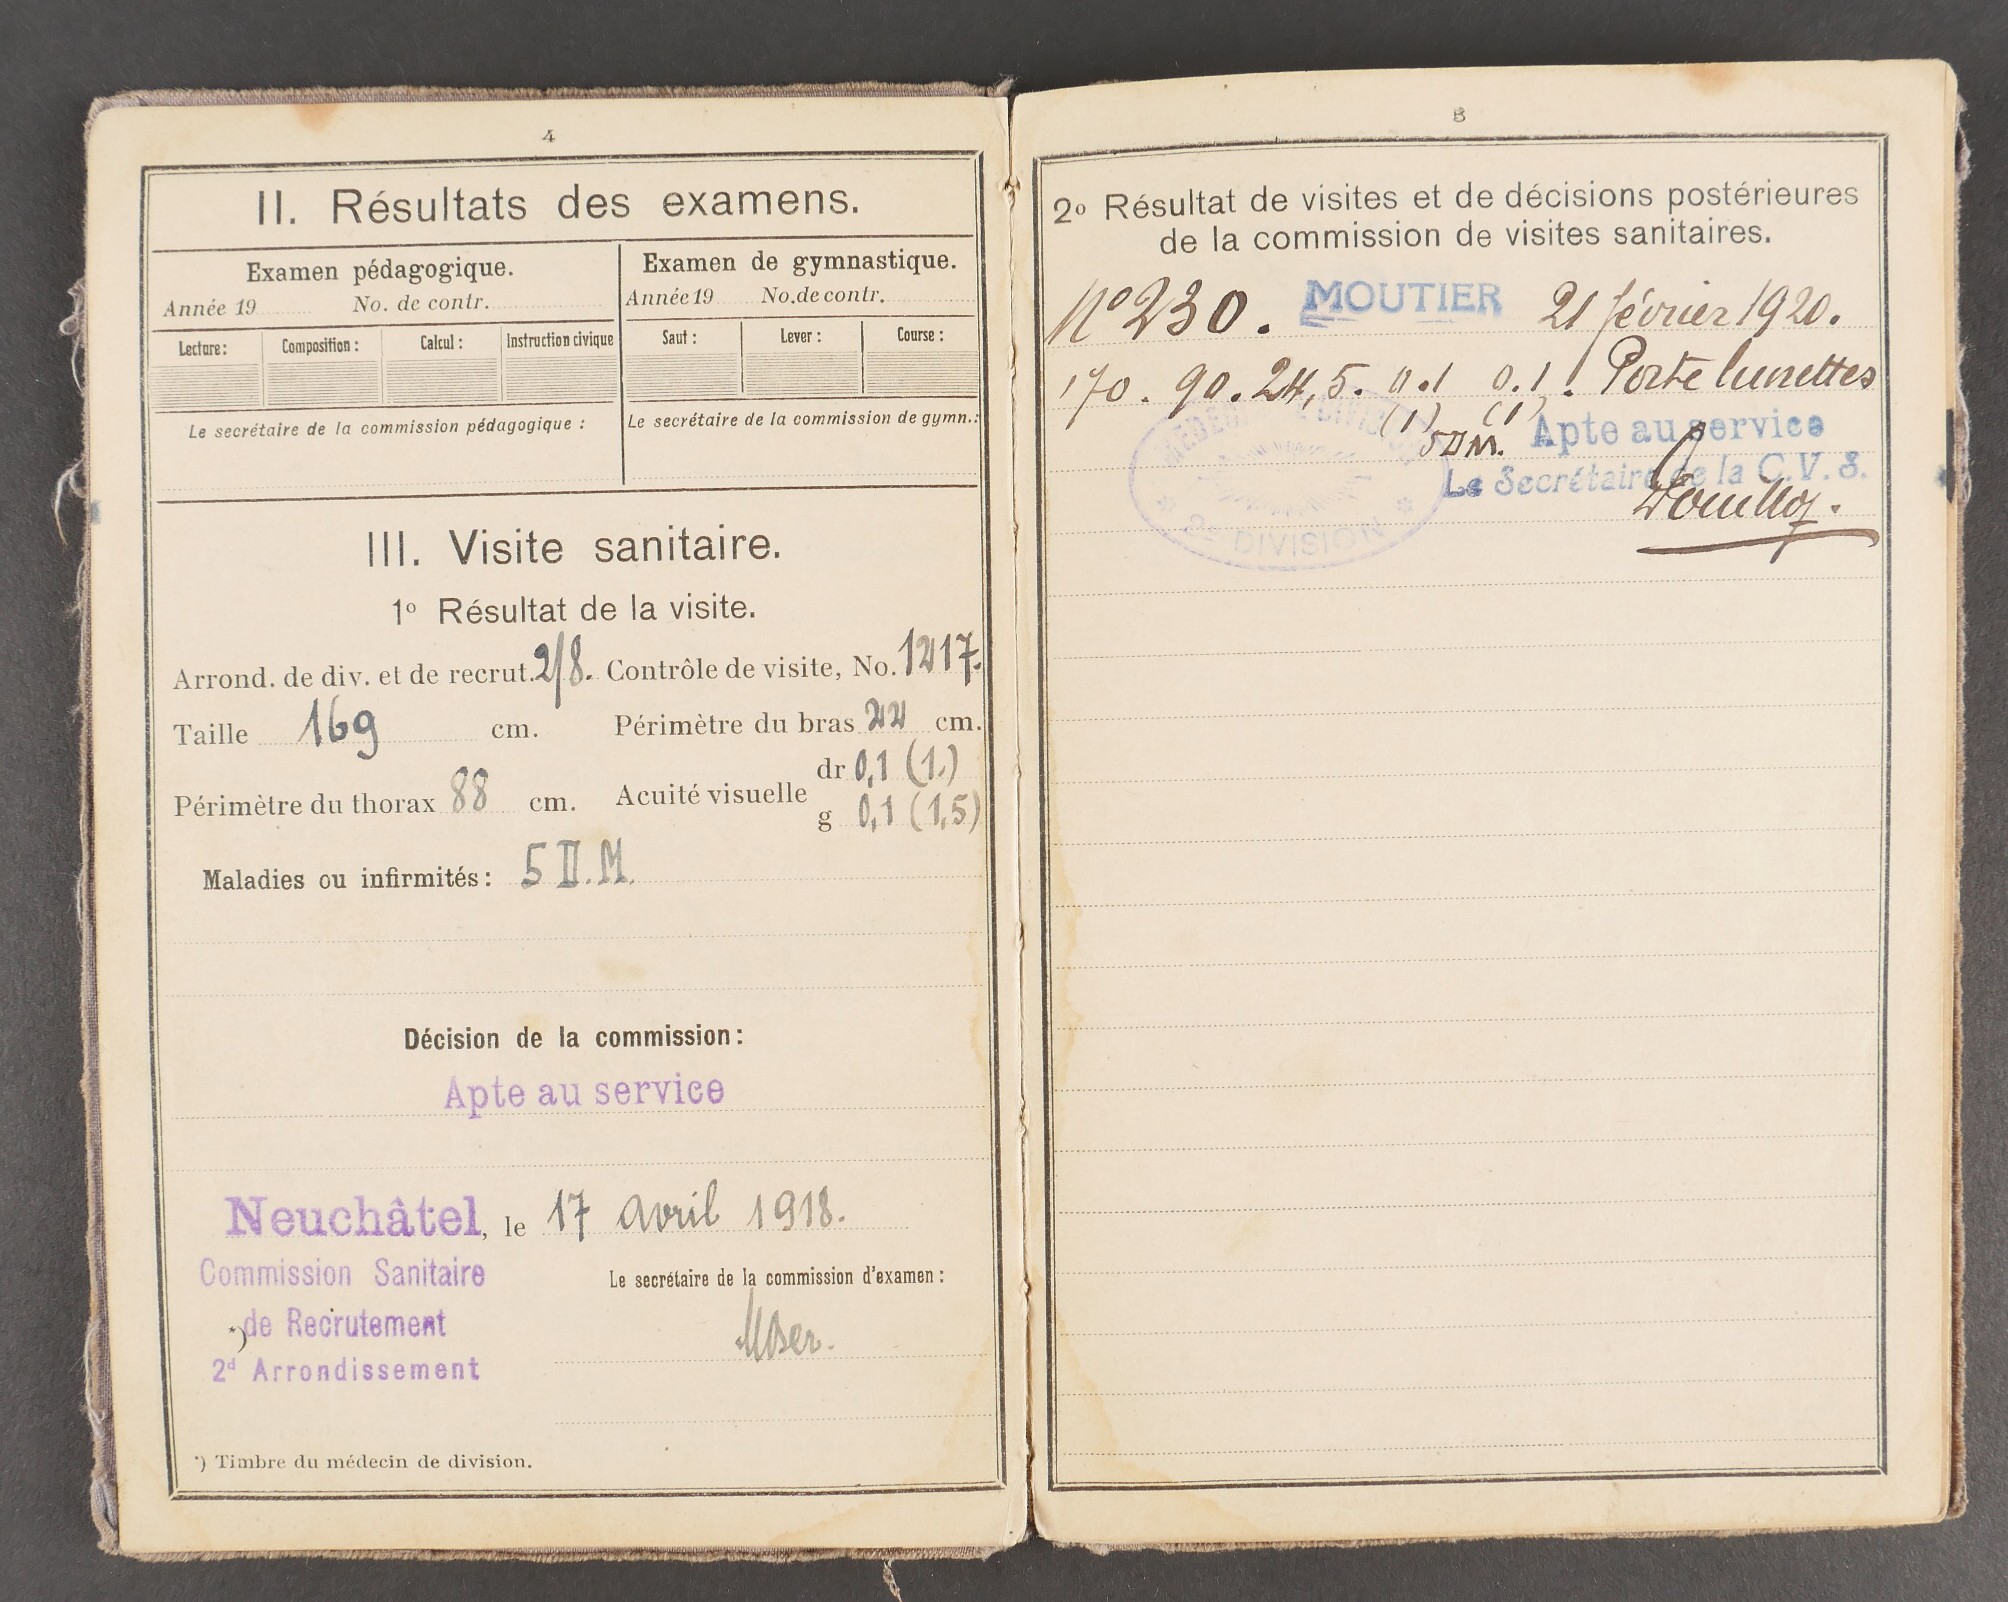 4
II. Résultats des examens.
Examen pédagogique.
Année 19 No. de contr.
Lecture: Composition: Calcul: Instruction civique
Le secrétaire de la commission pédagogique:
Examen de gymnastique.
Année 19 No. de contr.
Saut: Lever: Course:
Le secrétaire de la commission de gymn.:
III. Visite sanitaire.
1o Résultat de la visite.
Arrond. de div. et de recrut. 2/8. Contrôle de visite, No. 1217.
Taille 169 cm. Périmètre du bras 22 cm.
Périmètre du thorax 88 cm. Acuité visuelle dr 0,1 (1.)
g 0,1 (1,5)
Maladies ou infirmités: 5 II. M.
Décision de la commission:
Apte au service
Neuchâtel, le 17 avril 1918.
Commission Sanitaire
*) de Recrutement
2d Arrondissement
Le secrétaire de la commission d'examen:
Moser.
*) Timbre du médecin de division.
5
2o Résultat de visites et de décisions postérieures
de la commission de visites sanitaires.
No 230. MOUTIER 21 février 1920.
170. 90. 24,5. 0.1 0.1. Porte lunettes
(1) (1)
5 II M. Apte au service
Le Secrétaire de la C.V.S.
2e DIVISION